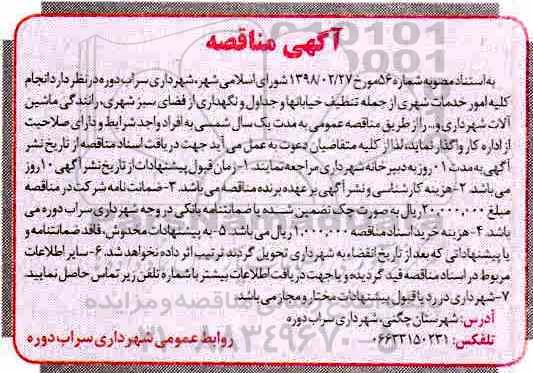 آگهی مناقصه
به استناد مصوبه شماره ۵۶ مورخ ۱۳۹۸/۰۲/۲۷ شورای اسلامی شهر، شهرداری سراب دوره در نظر دارد انجام
کلیه امور خدمات شهری از جمله تنظیف خیابانها و جداول و نگهداری از فضای سبز شهری، رانندگی ماشین
آلات شهرداری و... را از طریق مناقصه عمومی به مدت یک سال شمسی به افراد واجد شرایط و دارای صلاحیت
از اداره کار واگذار نماید، لذا از کلیه متقاضیان دعوت به عمل می آید جهت دریافت اسناد مناقصه از تاریخ نشر
آگهی به مدت ۱۰ روز به دبیرخانه شهرداری مراجعه نمایند. ۱- زمان قبول پیشنهادات از تاریخ نشر آگهی ۱۰ روز
می باشد. ۲- هزینه کارشناسی و نشر آگهی بر عهده برنده مناقصه می باشد. ۳- ضمانت نامه شرکت در مناقصه
مبلغ ۲۰۰,۰۰۰,۰۰۰ ریال به صورت چک تضمین شده یا ضمانتنامه بانکی در وجه شهرداری سراب دوره می
باشد. ۴- هزینه خرید اسناد مناقصه ۱,۰۰۰,۰۰۰ ریال می باشد. ۵- به پیشنهادات مخدوش، فاقد ضمانتنامه و
یا پیشنهاداتی که بعد از تاریخ انقضاء به شهرداری تحویل گردند ترتیب اثر داده نخواهد شد. ۶- سایر اطلاعات
مربوط در اسناد مناقصه قید گردیده و یا جهت دریافت اطلاعات بیشتر با شماره تلفن زیر تماس حاصل نمایید.
۷- شهرداری در رد یا قبول پیشنهادات مختار و مجاز می باشد.
آدرس: شهرستان چگنی، شهرداری سراب دوره
تلفکس: ۰۶۶۳۳۱۵۰۲۳۱ روابط عمومی شهرداری سراب دوره
۰۲۱-۸۸۳۴۹۶۷۰